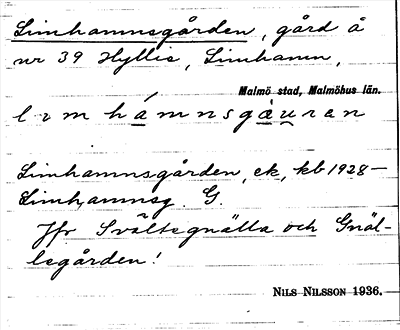 Limhamnsgården, gård å
nr 39 Hyllie, Limhamn,
Malmö stad, Malmöhus län.
limhámnsgàuran
Limhamnsgården, ek, kb 1928—
Limhamnsg. G.
Jfr Svältegnälla och Gnäl-
legården!
NILS NILSSON 1936.